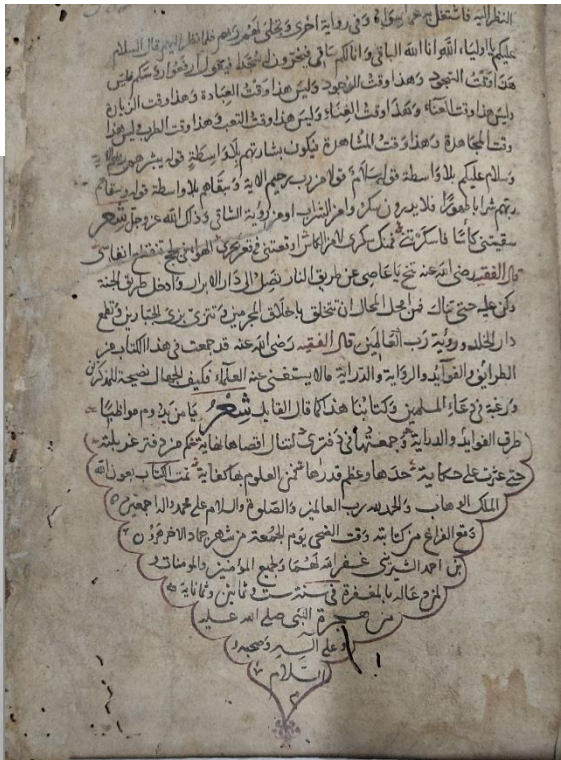 النظر اليه فاشتغل وفى رواية اخرى وتجلى لهم ربهم فلما نظر اليهم قال السلام
عليكم يا اولياء الله انا الله الباقى وانا لكم باقى فيخرون له سجدا فيقول ارفعوا رؤسكم فليس
هذا وقت السجود وهذا وقت الوجود وليس هذا وقت العبادة وهذا وقت الزيارة
وليس هذا وقت العناء وهذا وقت الغناء وليس هذا وقت التعب وهذا وقت الطرب ليس هذا
وقت المجاهدة وهذا وقت المشاهدة فيكون بشارتهم بلا واسطة قوله يبشرهم ربهم الاية
وسلام عليكم بلا واسطة قوله سلام قولا من رب رحيم الاية وسقاهم بلا واسطة قوله وسقاهم
ربهم شرابا طهورا فلا يدرون سكروا من الشراب او من روية الساقى وذلك الله عز وجل شعر
سقيتنى كأسا فاسكرتنى فمنك سكرى لا من الكاس اوقعتنى فى بحر الهوا فى لج تنقطع انفاسى
قال الفقيه رضى الله عنه تنح يا عاصى عن طريق النار تصل الى دار الابرار وادخل طريق الجنة
وكن عليه حتى تراك فمن امحل المحال ان تتخلق باخلاق المجرمين وتتزى بزى الجبارين وتطمع
دار الخلد وروية رب العالمين قال الفقيه رضى الله عنه قد جمعت فى هذا الكتاب من
الطرائق والفوآيد والرواية والدراية مالا يستغنى عنه العلماء فكيف الجهال نصيحة للمذكرين
ورغبة فى دعاء المسلمين وكتابنا هذا كما قال القايل شعر يا من يدوم مواظبا
طرف الفوايد والدراية وجمعتها فى دفترى لتنال اقصاها لغاية كم من دفتر غربلته
حتى عثرت على حكاية خذها وعظم قدرها فمن العلوم لها كفاية تمت الكتاب بعون الله
الملك الوهاب والحمد لله رب العالمين والصلوة والسلام على محمد واله اجمعين
وقع الفراغ من كتابته وقت الضحى يوم الجمعة من شهر جماد الاخر
بن احمد غفر الله لهما ولجميع المؤمنين والمومنات و
لمن دعا له بالمغفرة فى سنة ست وثمانين وثمانماية
من هجرة النبى صلى الله عليه
وعلى آله وصحبه
السلام